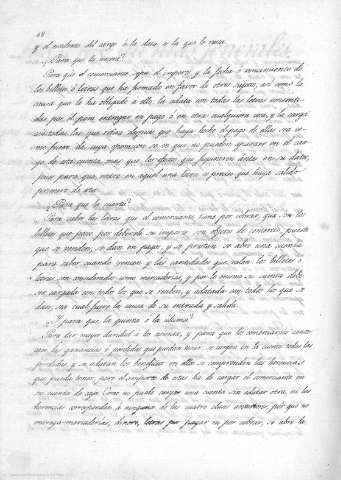 68
y el nombre del cargo á la data, á la que lo causa.
¿Para que la tercera?
Para que el comerciante sepa el importe y la fecha ó vencimiento de
los billetes ó letras que ha firmado en favor de otros sujetos, así como la
causa que le ha obligado a ello, la adata con todas las letras
por él para entregar en pago ó en otra cualquiera cosa, y la carga
con todas las que retira despues que haya hecho el pago de ellas
de cuya operacion se ve que no pueden quedar en el cargo
de esta cuenta mas que los efectos que figuraron antes en su data,
pues para que entre en aquel una letra es preciso que haya salido
primero de esta.
¿Para que la cuarta?
Para saber las letras que el comerciante tiene por cobrar, que son los
billetes que posee por deberle su importe; son efectos de comercio, puesto
que se venden, se dan en pago, y se
para saber cuando vencen y las cantidades que valen los billetes ó
letras, son consideradas como mercaderías, y por lo mismo su cuenta debe
ser cargada con todos los que se reciben, y adatada con todos los que se
dan, sea cual fuere la causa de su entrada y salida.
¿Y para que la quinta ó la última?
Para dar mayor claridad á los asientos, y para que la comerciante
con las ganancias ó pérdidas que puedan tener, se cargan en la cuenta todas las
pérdidas, y se adatan los beneficios en ella se comprenden las herencias
que pueda tener, pero el importe de estas ha de cargar el comerciante en
su cuenta de caja. Como no puede cargar una cuenta sin adatar otra, ni las
herencias corresponden á ninguna de las cuatro clases anteriores, por que no
entrega mercaderías, dinero, letras por pagar ni por cobrar, se abre la